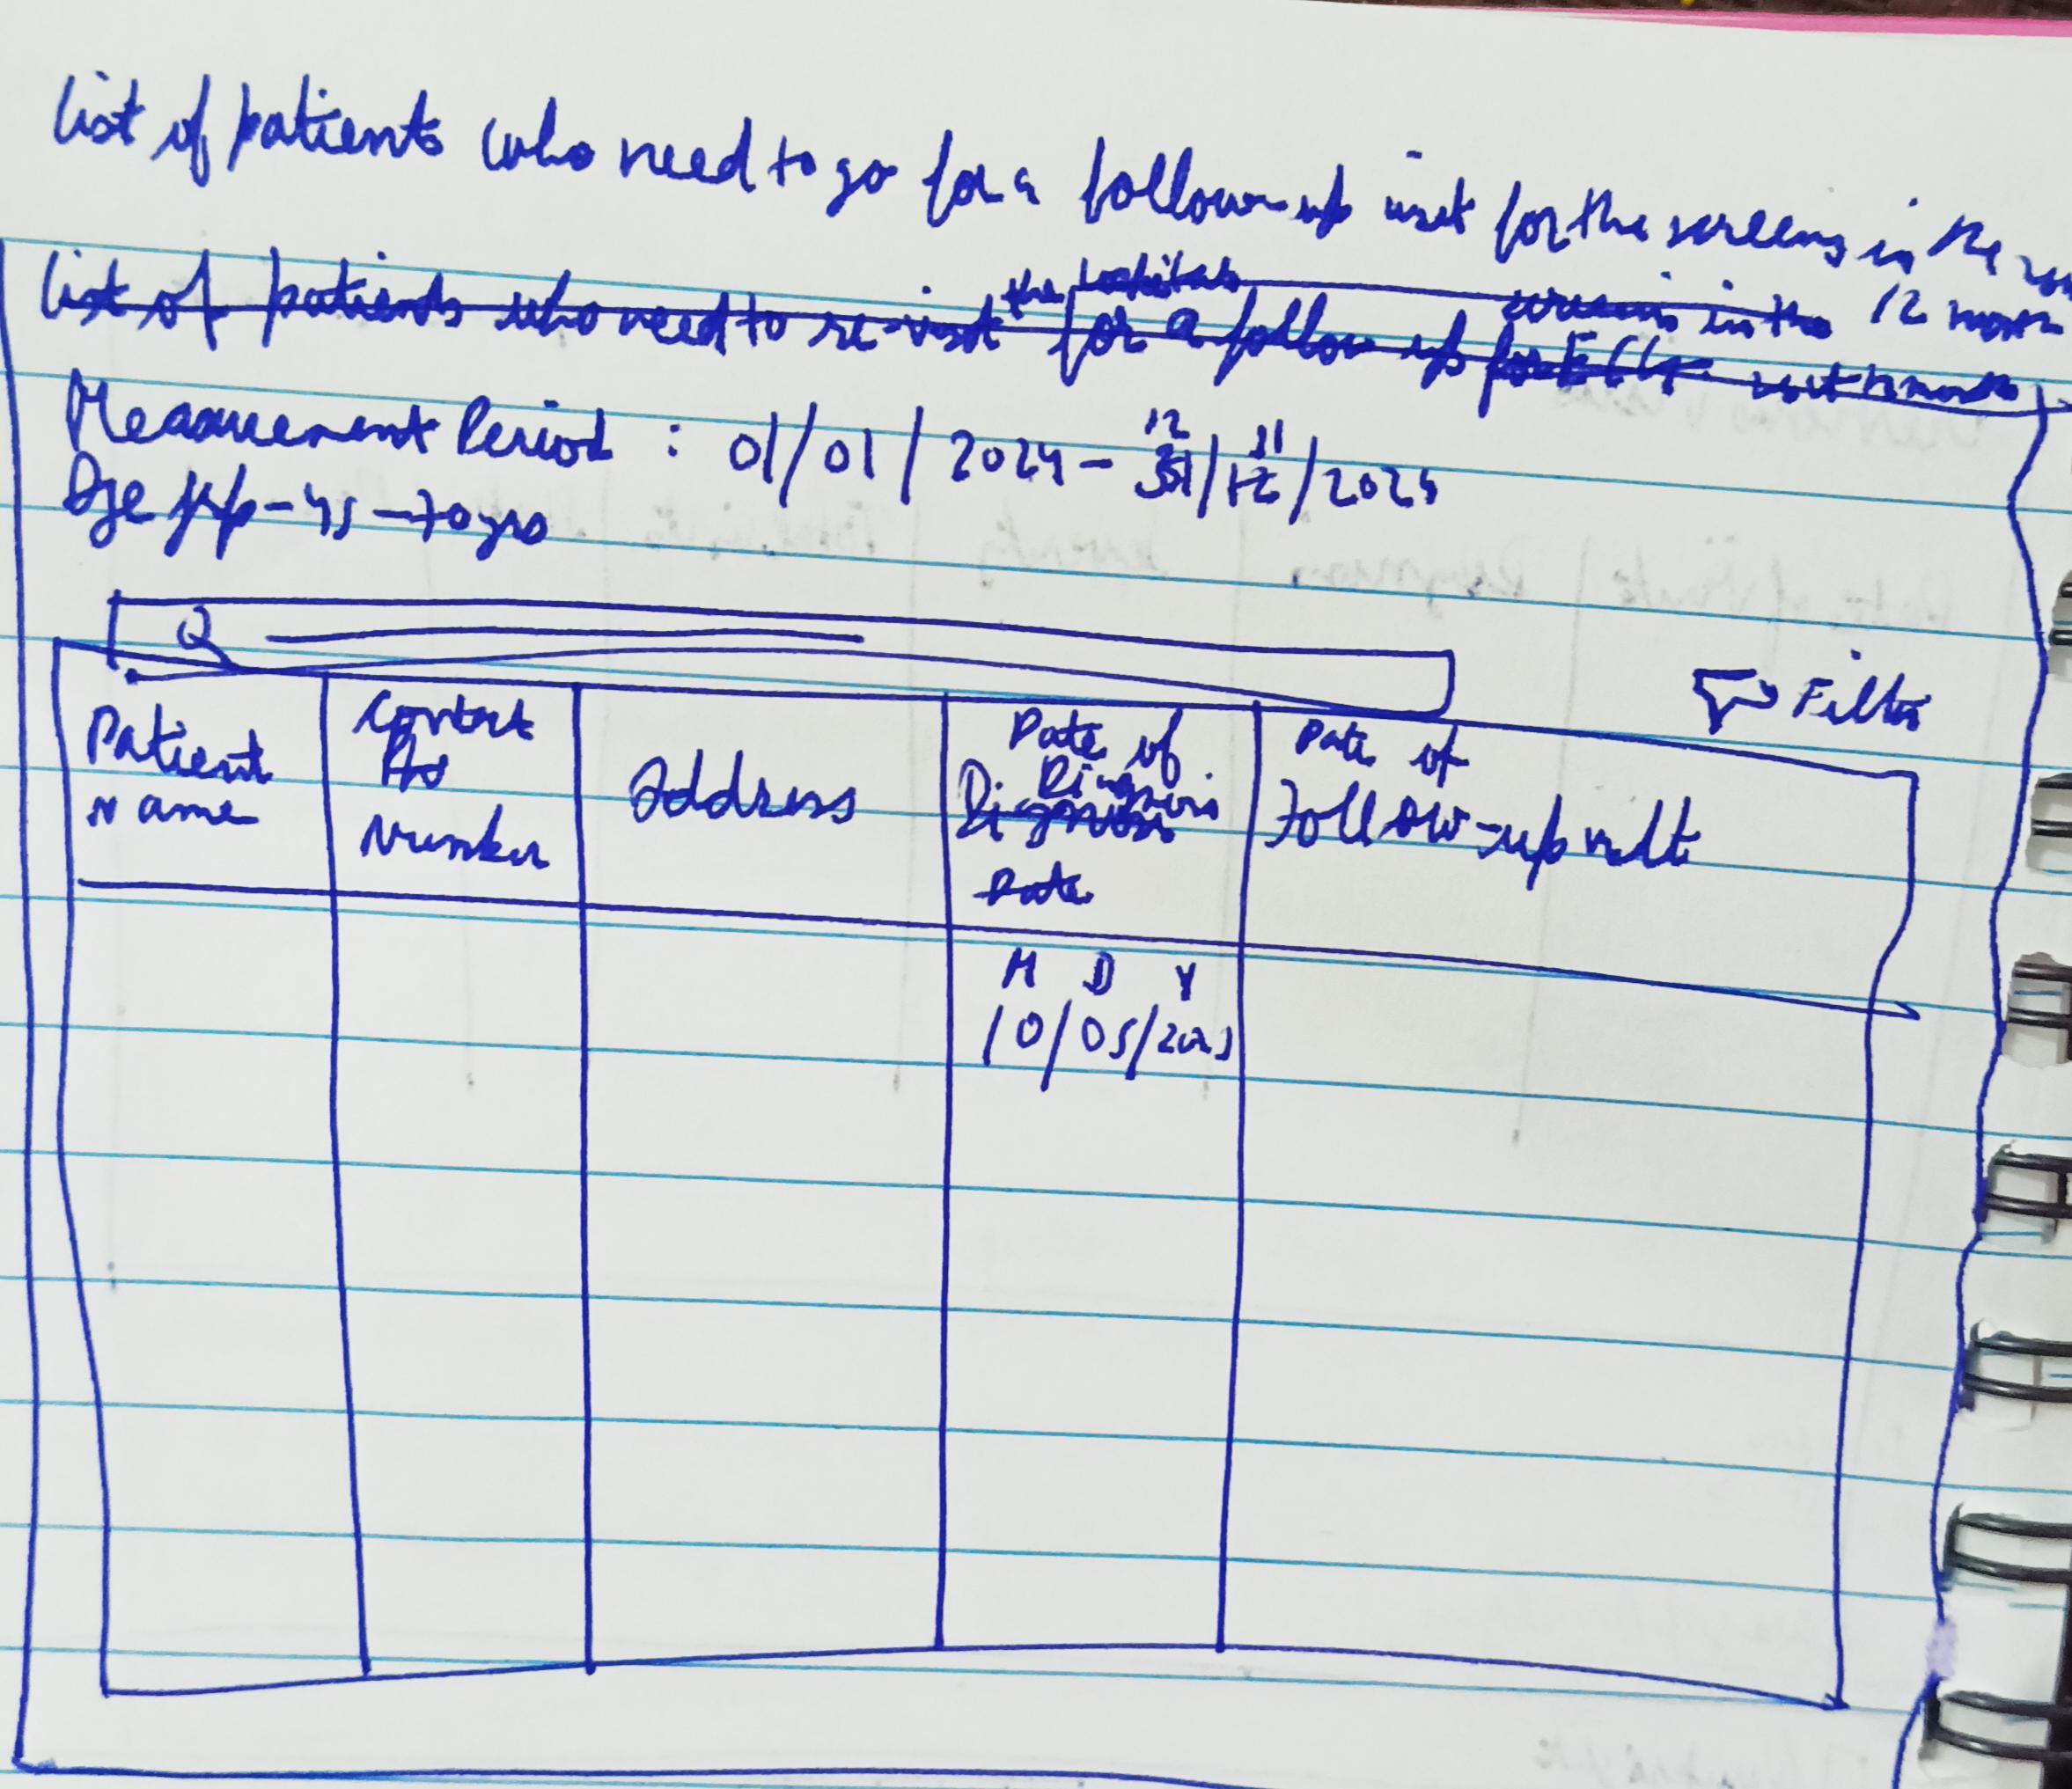 List of patients who need to go for a follow-up visit for the screening in the
List of patients who need to re-visit the for a follow up in the 12 month
Measurement Period : 01/01/2024 - 12/11/2024
Age grp - 45 - 70 yrs
Filter
Patient Name
Contact No Number
Address
Date of Diagnosis Diagnosis Date
Date of Follow-up visit
M D Y
10/05/2023